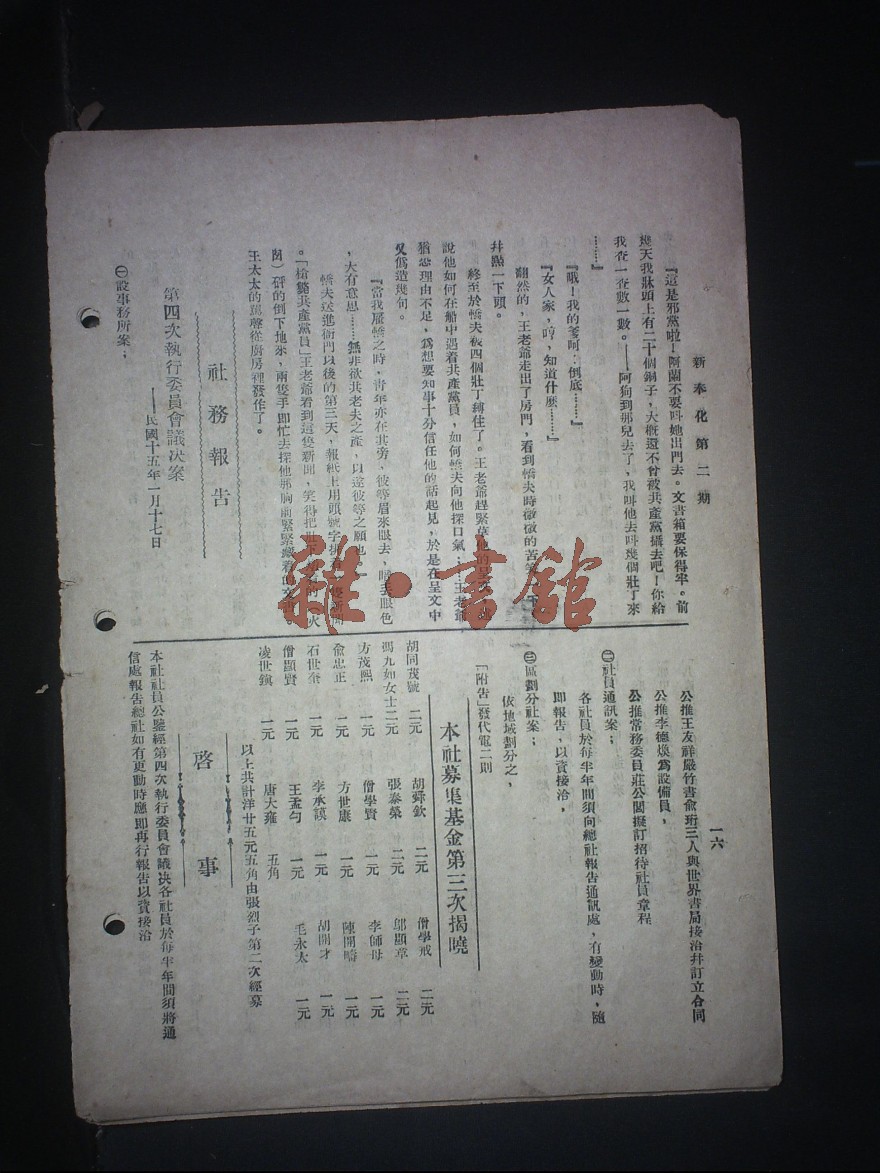 新奉化第二期
一六
『這是邪黨啦！阿蘭不要呌她出門去。文書箱要保得牢。前
幾天我牀頭上有二十個銅子，大概還不曾被共產黨攝去吧！你給
我查一查數一數。——阿狗到那兒去了，我呌他去呌幾個壯丁來
………』
『哦！我的爹呵：倒底………』
『女人家，哼，知道什麼………』
翻然的，王老爺走出了房門，看到憍夫時微微的苦笑
幷點一下頭。
終至於憍夫被四個壯丁縛住了。王老爺趕緊草他的呈文，
說他如何在船中遇着共產黨員，如何憍夫向他探口氣……王老爺
猶恐理由不足，爲想要知事十分信任他的話起見，於是在呈文中
又僞造幾句。
『當我雇憍之時，靑年亦在其旁，彼等眉來眼去，暗丟眼色
，大有意思……無非欲共老夫之產，以遂彼等之願也
憍夫送進衙門以後的第三天，報紙上用頭號字
。「槍斃共產黨員」王老爺看到這隻新聞，笑得把
囱）砰的倒下地來，兩隻手卽忙去探他那胸前緊緊繫着的文書
王太太的罵聲從廚房裡發作了。
社務報告
第四次執行委員會議決案
——民國十五年一月十七日
㊀設事務所案；
公推王友祥嚴竹書兪珩三人與世界書局接洽幷訂立合同
公推李德煥爲設備員，
公推常務委員莊公閭擬訂招待社員章程
㊁社員通訊案；
各社員於每半年間須向總社報告通訊處，有變動時，隨
卽報告，以資接洽，
㊂區劃分社案；
依地域劃分之，
「附告」發代電二則
本社募集基金第三次揭曉
胡同茂號 二元 胡舜欽 二元 僧學戒 二元
馮九如女士二元 張泰榮 二元 鄔顯章 二元
方茂熙 一元 僧學賢 一元 李師母 一元
兪忠正 一元 方世康 一元 陳開疇 一元
石世奎 一元 李承謨 一元 胡開才 一元
僧顯賢 一元 王孟勻 一元 毛永太 一元
凌世鎭 一元 唐大雍 五角
以上共計洋廿五元五角由張烈子第二次經募
啓事
本社社員公鑒經第四次執行委員會議決各社員於每半年間須將通
信處報告總社如有更動時應卽再行報告以資接洽
雜·書館